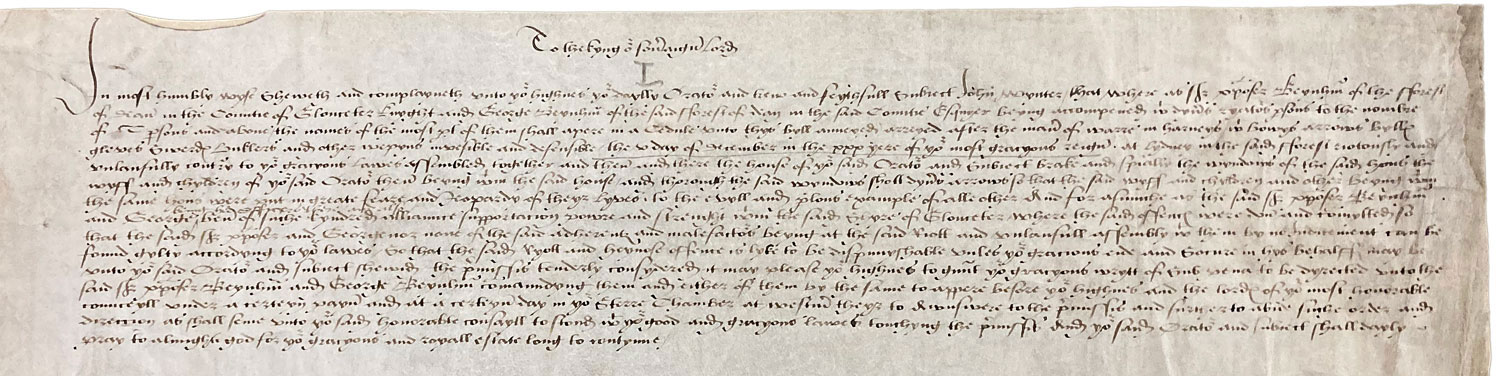 To the kyng oʳ souʳaignʳ lord
In most humbly wyse Sheweth and complayneth vnto yoʳ highnes yoʳ dayly Oratoʳ and trew and feythfull Subiect John Wynter that where as sʳ xpofer Beynhm̄ of the fforest
of dean in the Countie of Glouceter knyght and George Beynhm̄ of the said fforest of dean in the said Countie Esquyer beyng accompened wᵗ dyuʳs ryotoʳs psons to the nombre
of psons and aboue the names of the most pt of them shall apere in a Cedule vnto thys byll annexed arreyed after the manʳ of warre in harneys wᵗ bowys arrows byllꝭ
gleves Swerdꝭ buklers and other wepyns invesible and defensible the v day of december in the xxx yere of yoʳ most gracyous reignʳ at lydney in the said fforest riotously and
vnlaufully contrʳy to yoʳ gracyous lawes assembled together and then and there the house of yoʳ said Oratoʳ and Subiect brake and spially the wyndows of the said hous the
wyff and chyldren of yoʳ said Oratoʳ then beyng wᵗin the said house and thorough the said wyndows shott dyuʳs arrows so that the said wyff and chyldren and other beyng wᵗin
the same hous were put in great feare and Jeopardy of theyr lyves to the evyll and plous example of alle other And for asmuche as the said sʳ xpofer Beynhm̄
and George ben of suche kynderd alliaunce supportacion powre and strenght wᵗin the said Shyre of Glouceter where the said offencꝭ were don and comytted so
that the said sʳ xpofer and George nor none of the said adherentꝭ and malefactoʳs beyng at the said Riott and vnlaufull assembly wᵗ them by no enditement can be
found gylty accordyng to yoʳ lawes So that the said Ryott and heynose offence is lyke to be dispunyshable vnles yoʳ gracious eide and socure in thys behalff may be
vnto yoʳ said Oratoʳ and subiect shewid the pmissis tenderly consydered it may please yoʳ highnes to graunt yoʳ gracyous wrytt of sub pena to be dyrected vnto the
said sʳ xpofer Beynhm̄ and George Beynhm̄ comaundyng them and either of them by the same to appere before yoʳ highnes and the lordꝭ of yoʳ most honorable
counceyll vnder a certeyn payn and at a certeyn day in yoʳ Sterre Chamber at westmʳ theyr to Aunswere to the pmissis and further to abide suche order and
direccion as shall seme vnto yoʳ said honorable counsayll to stond wᵗ yoʳ good and gracyous lawes touchyng the pmissꝭ And yoʳ said Oratoʳ and subiect shall dayly
pray to almighte god for yoʳ gracyous and royall estate long to contynue